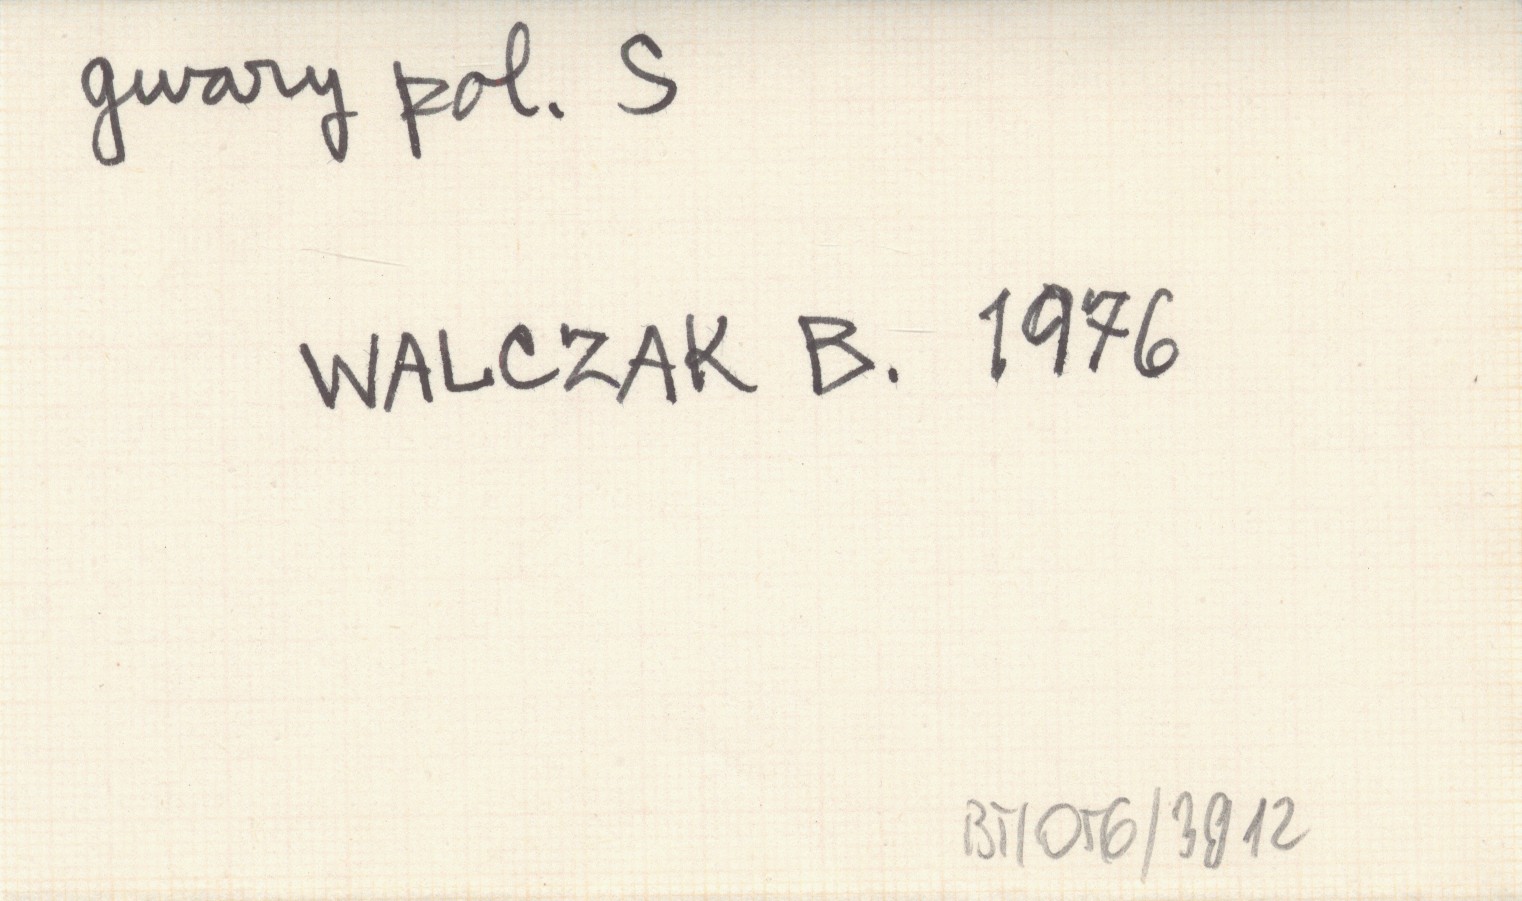 gwary pol. S
WALCZAK B. 1976
BT/056/3912